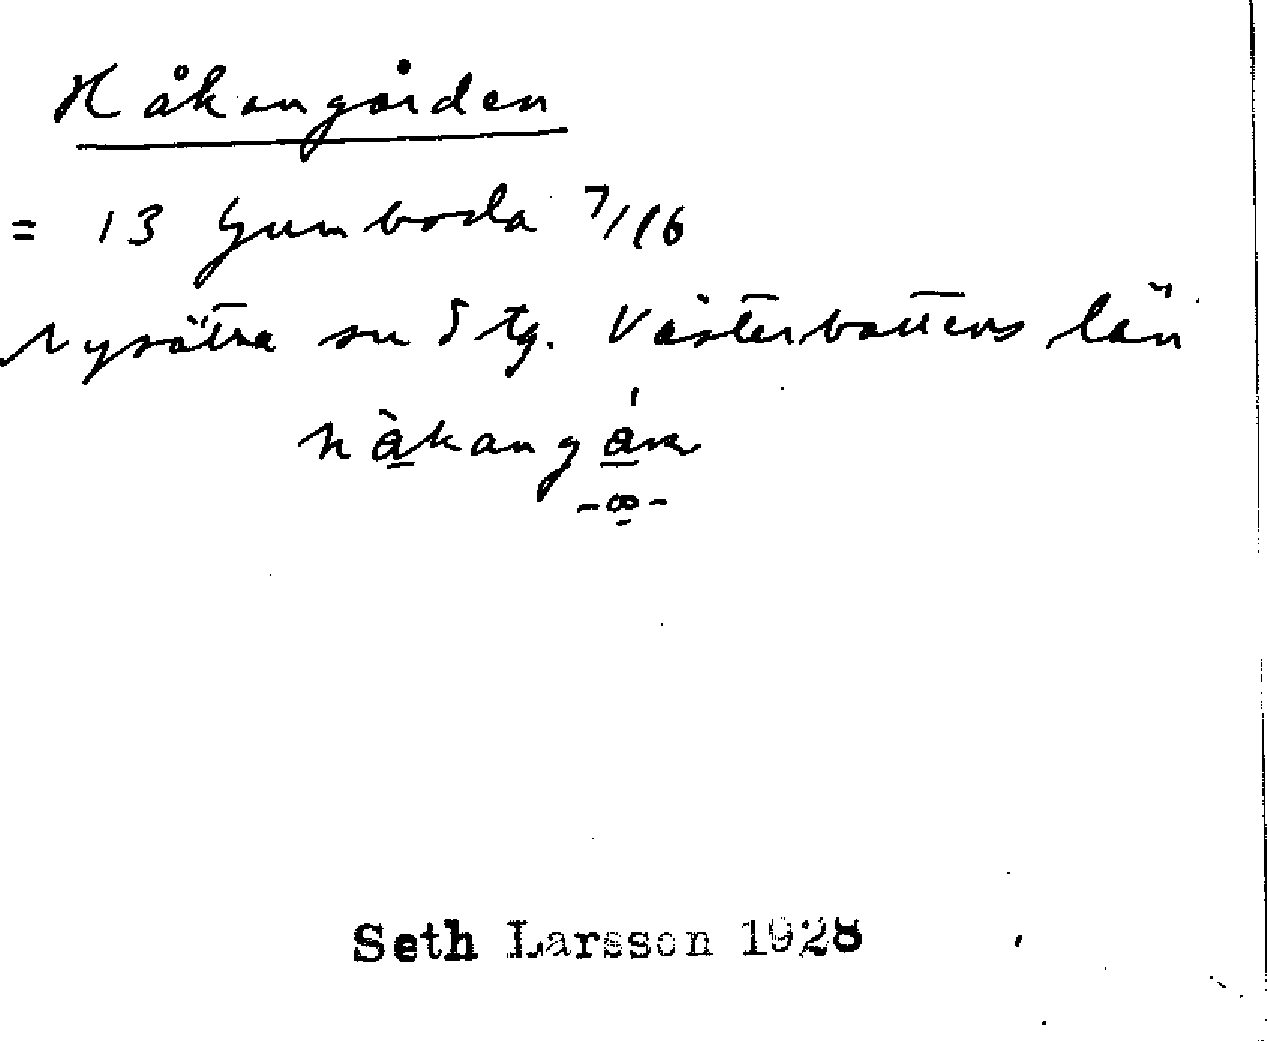 Håkangården
= 13 Gumboda 7/16
Nysätra sn S tg. Västerbottens län
hàkangán
Seth Larsson 1928